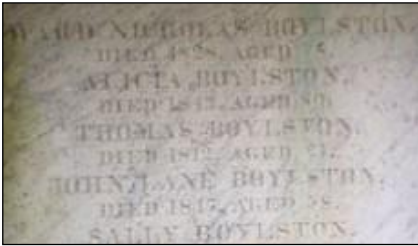 WARD NICHOLAS BOYLSTON,
DIED 1828, AGED
ALICIA BOYLSTON,
DIED AGED
THOMAS BOYLSTON,
DIED AGED
JOHN LANE BOYLSTON,
DIED 1847, AGED 58.
SALLY BOYLSTON,